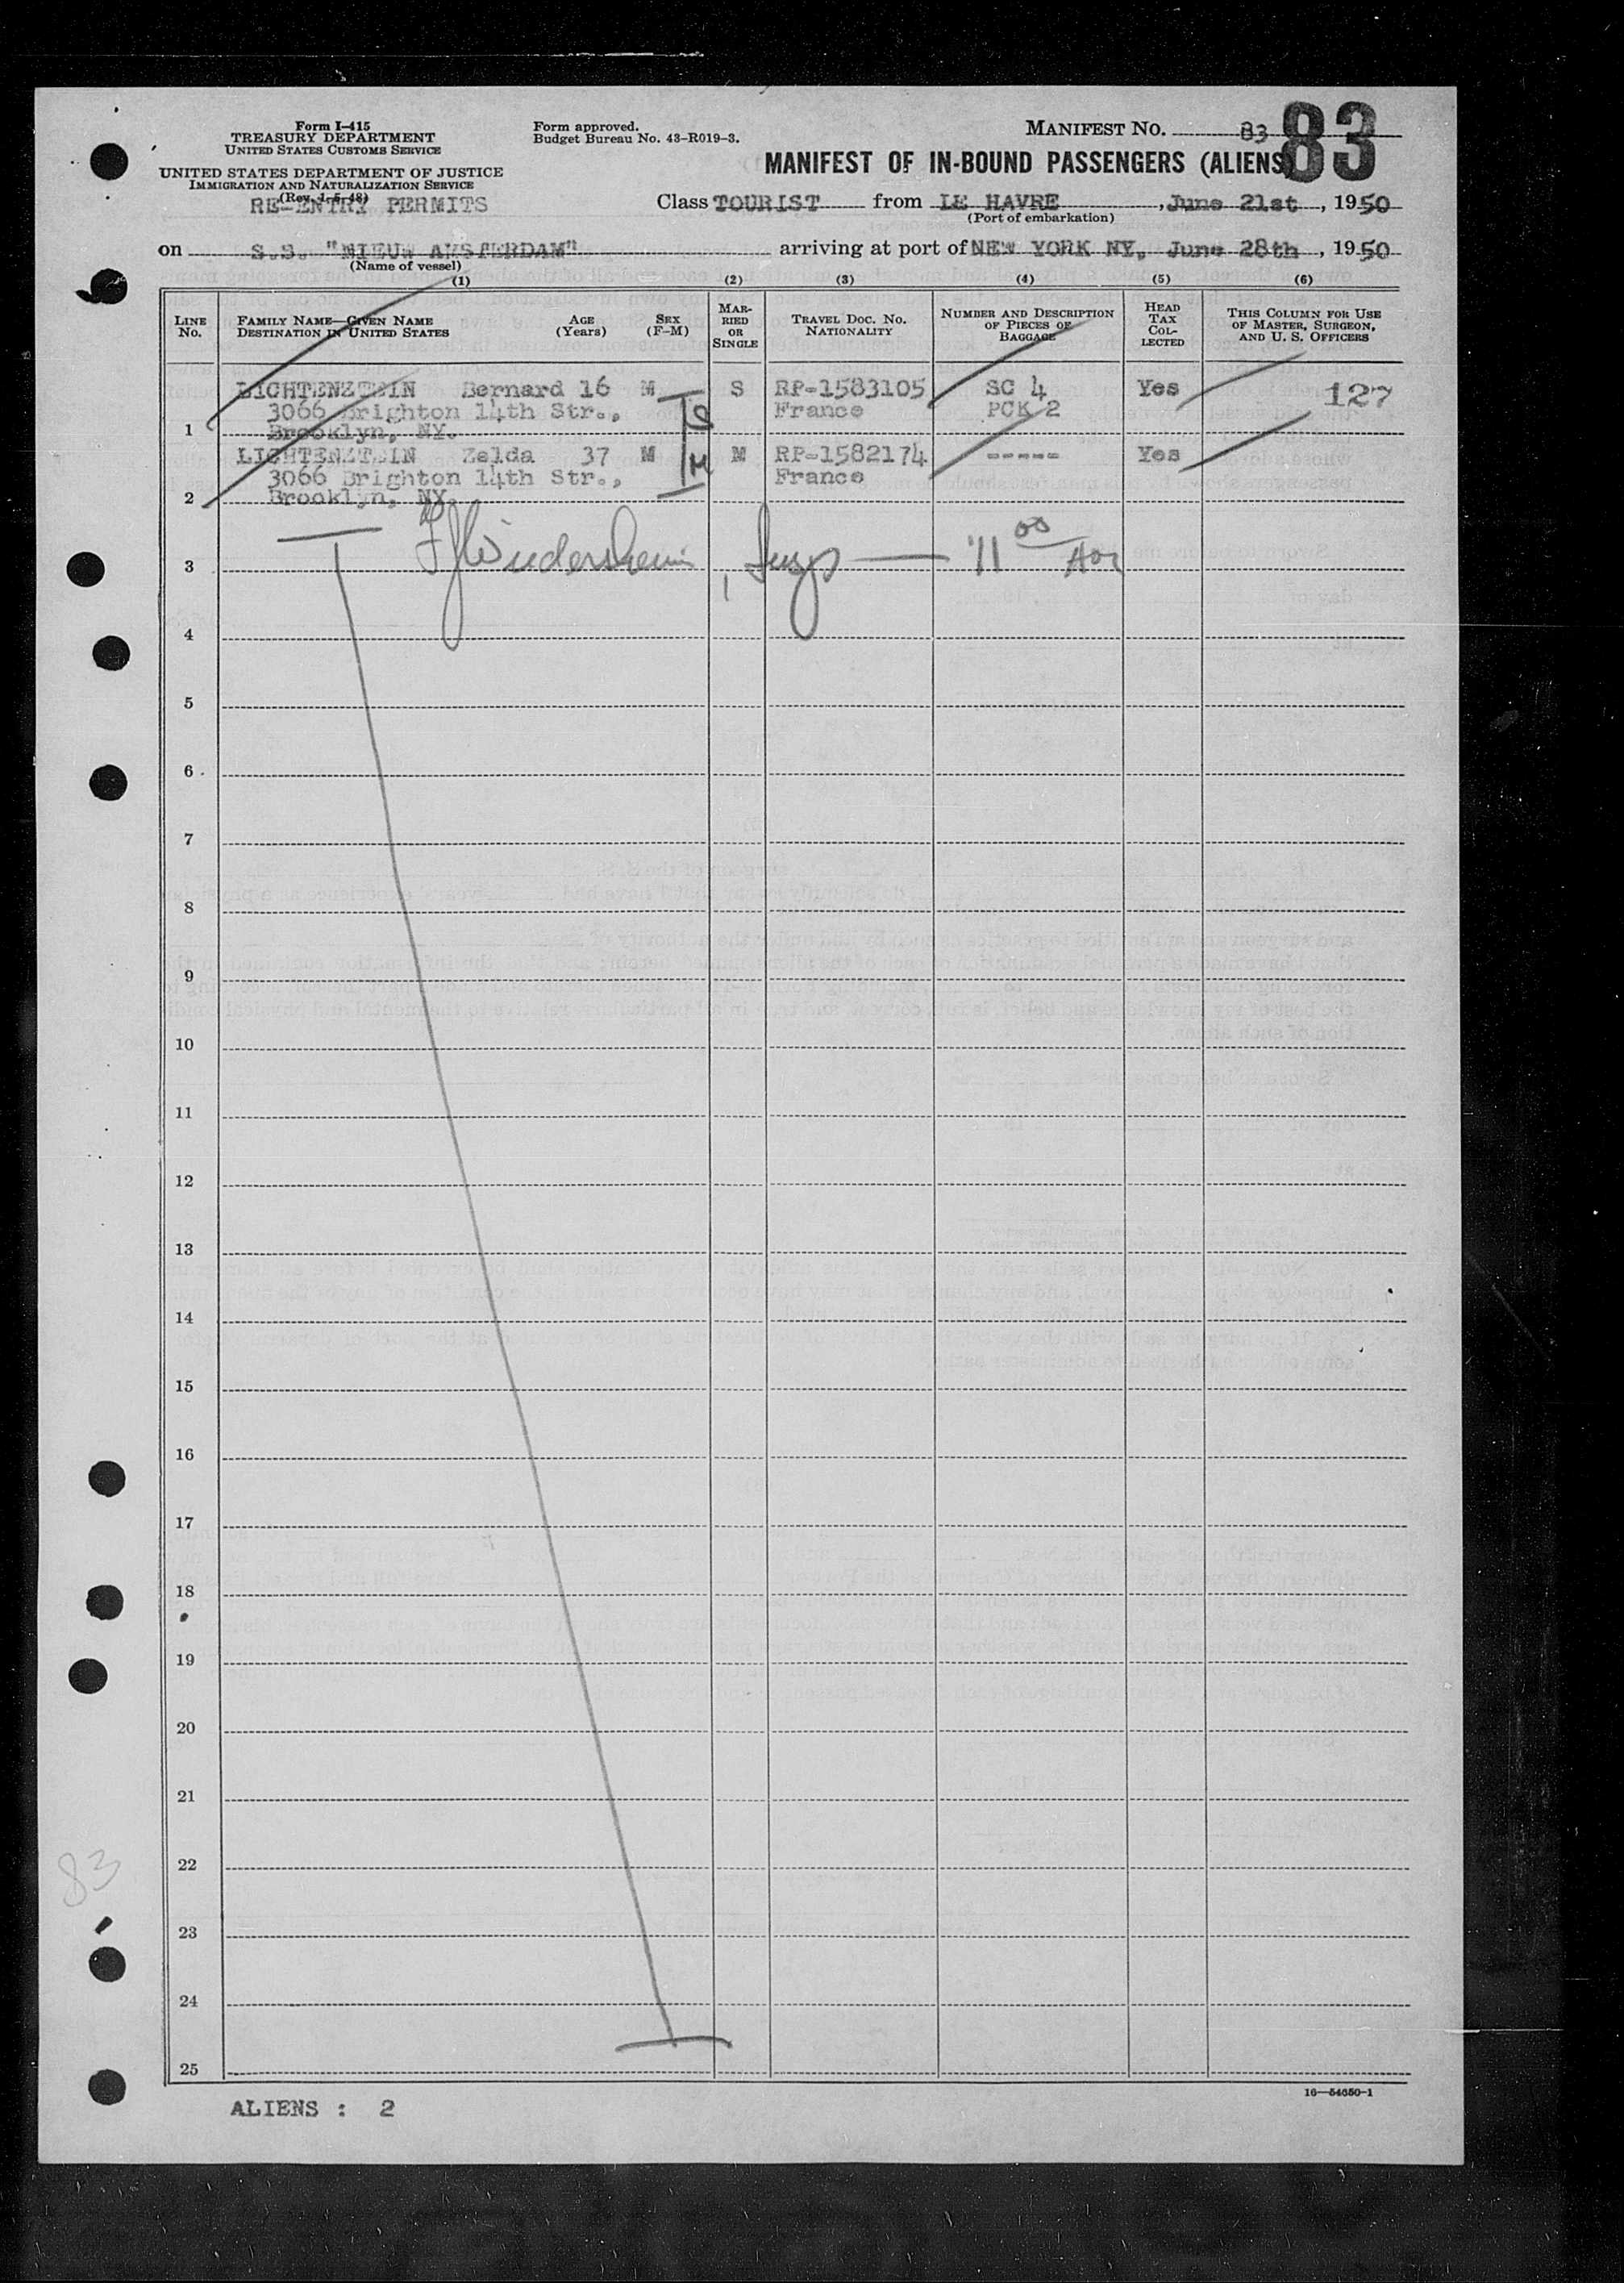 Form I-415
TREASURY DEPARTMENT
UNITED STATES CUSTOMS SERVICE
UNITED STATES DEPARTMENT OF JUSTICE
IMMIGRATION AND NATURALIZATION SERVICE
(Rev. 1-5-48)
RE-ENTRY PERMITS
Form approved.
Budget Bureau No. 43-R019-3.
MANIFEST NO. 83 83
MANIFEST OF IN-BOUND PASSENGERS (ALIENS)
Class TOURIST from LE HAVRE, June 21st, 1950
(Port of embarkation)
on S.S. "NIEUW AMSTERDAM" arriving at port of NEW YORK NY, June 28th, 1950
(Name of vessel)
(1) (2) (3) (4) (5) (6)
LINE No. FAMILY NAME—GIVEN NAME DESTINATION IN UNITED STATES AGE (Years) SEX (F-M) MARRIED OR SINGLE TRAVEL DOC. NO. NATIONALITY NUMBER AND DESCRIPTION OF PIECES OF BAGGAGE HEAD TAX COLLECTED THIS COLUMN FOR USE OF MASTER, SURGEON, AND U. S. OFFICERS
LICHTENZTEIN Bernard 16 M S RP-1583105 SC 4 Yes 127
3066 Brighton 14th Str., S France PCK 2
1 Brooklyn, NY.
LICHTENZTEIN Zelda 37 M M RP-1582174 ----- Yes
3066 Brighton 14th Str., M France
2 Brooklyn, NY.
3 11 00
4
5
6
7
8
9
10
11
12
13
14
15
16
17
18
19
20
21
22
23
24
25
83
16—54650-1
ALIENS : 2